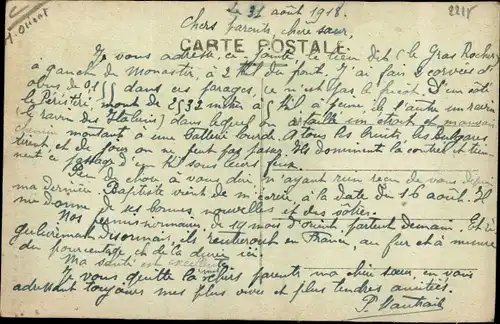 A. Orient
Le 31 août 1918.
2215
Chers parents, chère sœur,
CARTE POSTALE
Je vous adresse, ci-jointe, le lieu dit (le Gros Rocher)
à gauche de Monastir, à 2 Kil du front. J'ai fait 2 corvées d'
obus de 155 dans ces parages, ce n'est pas le filon. D'un côté
le Peristeri, mont de 2532 mètres à 5 Kil à peine, de l'autre un ravin
(le ravin des Italiens) dans lequel on a taillé un étroit et mauvais
chemin montant à une batterie lourde. A tous les bruits les Bulgares
tirent, et de jour on ne peut pas passer. Ils dominent la contrée et tien
nent ce passage d'un Kil sous leurs feux.
Peu de choses à vous dire, n'ayant rien reçu de vous depuis
ma dernière. Baptiste vient de m'écrire, à la date du 16 août. Il
me donne de ses bonnes nouvelles et des vôtres.
Nos permissionnaires, de 19 mois d'Orient partent demain. Et ré
gulièrement désormais, ils rentreront en France, au fur et à mesure
du pourcentage et de la durée ici
Ma santé est excellente
Je vous quitte chers parents ma chère sœur, en vous
adressant toujours mes plus vives et plus tendres amitiés.
P.